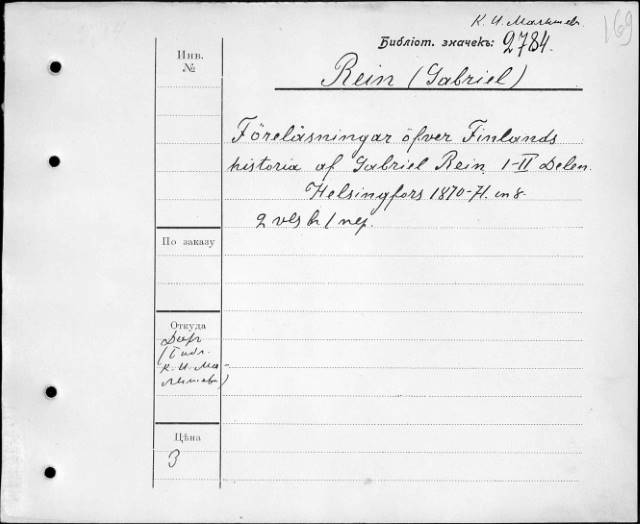 К. И. Малышев.
169
Библіот. значекъ: 2784.
Rein (Gabriel)
Инв.
№
Föreläsningar öfver Finlands
historia af Gabriel Rein. I-II Delen.
Helsingfors 1870-71. in 8.
2 vls br / nep.
По заказу
Откуда
Дар
(Библ.
К. И. Ма-
лышева)
Цѣна
3